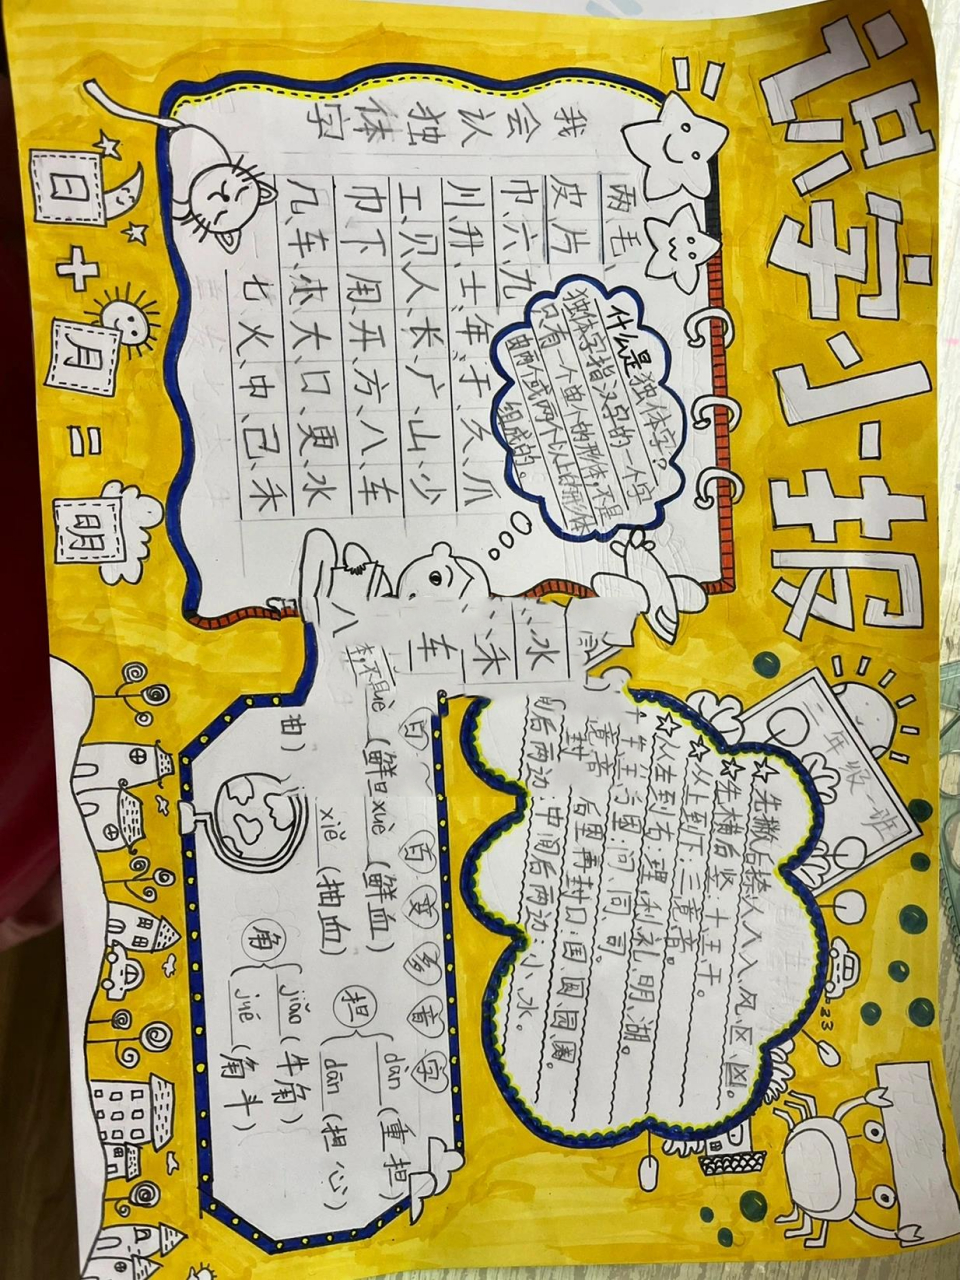 识字小报
我会认独体字
两、毛、
皮、片、
巾、六、九
川、升、士、年、于、幺、爪
工、贝、人、长、广、山、少
巾、下、用、开、方、八、车
几、车、木、大、口、更、水
七、火、中、己、禾
什么是独体字？
独体字指汉字的一个字
只有一个由个的形体，不是
由两个或两个以上的形体
组成的。
日+月=明
水
禾
车
八
二年级一班
☆先撇后捺：人、入、风、区、凶。
☆先横后竖：十、王、干。
☆从上到下：三、意、音。
☆从左到右：理、利、礼、明、湖。
意、音
问、同、司。
后里再封口：国、圆、园、圈。
时后两边：中间后两边：小、水。
百变多音字
血
xuè（鲜血）
xiě（抽血）
担
dān（重担）
dān（担心）
角
jiǎo（牛角）
jué（角斗）